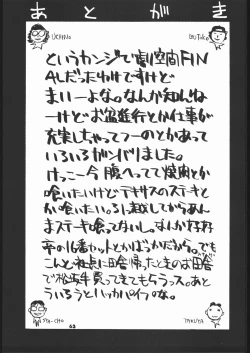 あとがき
UCHINO
というカンジで劇空間FIN
ALだったわけですけど
まいーよな。なんか知んね
ーけどお盆進行とか仕事が
充実しちゃってつーのとかあって
いろいろガンバリました。
けっこー今腹へってて焼肉とか
喰いたいけどテキサスのステーキと
か喰いたい。引っ越してからあん
まステーキ喰ってないし。なんか
亭の16番セットとかばっかだから。でも
こんど社長に田舎帰ったときのお田舎
で松坂牛買ってきてもらうっス。あと
ういろうとハッカパイプのな。
63
TAKUYA